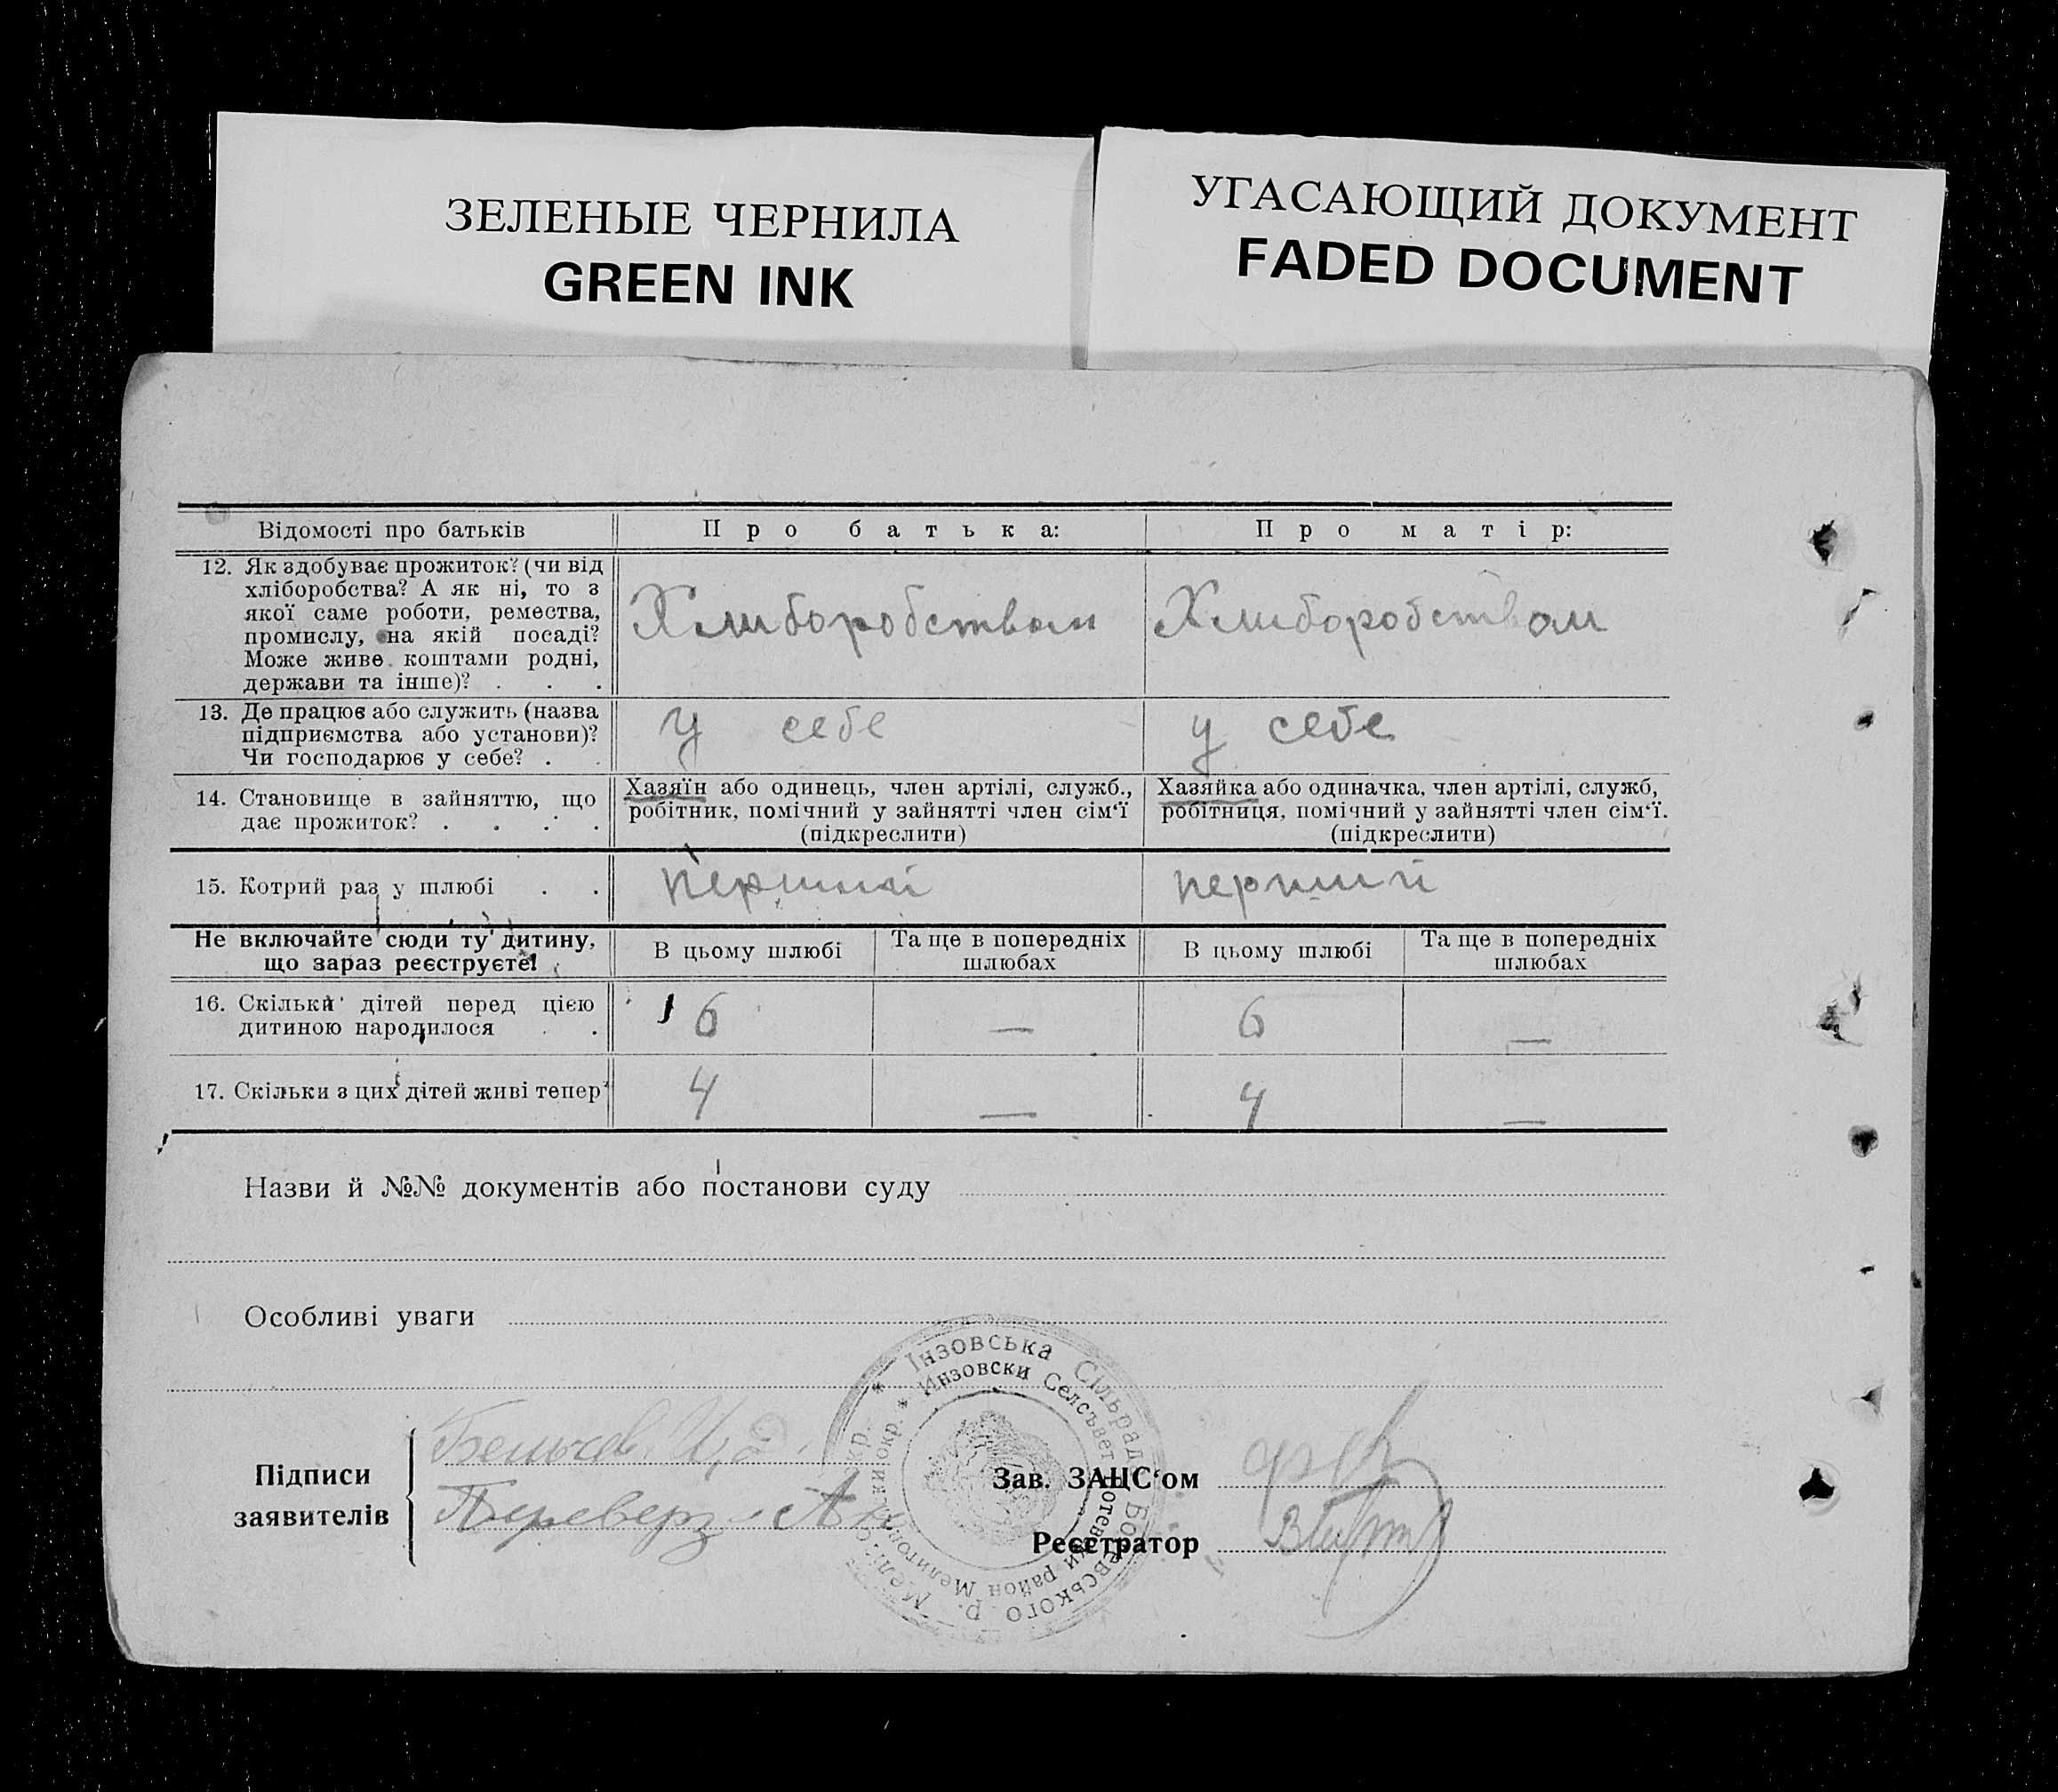 ЗЕЛЕНЫЕ ЧЕРНИЛА
GREEN INK
УГАСАЮЩИЙ ДОКУМЕНТ
FADED DOCUMENT
Відомості про батьків
Про батька:
Про матір:
12. Як здобуває прожиток? (чи від
хліборобства? А як ні, то з
якої саме роботи, ремества,
промислу, на якій посаді?
Може живе коштами родні,
держави та інше)? . . .
Хлиборобством
Хлиборобством
13. Де працює або служить (назва
підприємства або установи)?
Чи господарює у себе? . .
у себе
у себе
14. Становище в зайняттю, що
дає прожиток? . . . .
Хазяїн або одинець, член артілі, служб.,
робітник, помічний у зайнятті член сім‘ї
(підкреслити)
Хазяйка або одиначка, член артілі, служб,
робітниця, помічний у зайнятті член сім‘ї.
(підкреслити)
15. Котрий раз у шлюбі . .
перший
перший
Не включайте сюди ту дитину,
що зараз реєструєте!
В цьому шлюбі
Та ще в попередніх
шлюбах
В цьому шлюбі
Та ще в попередніх
шлюбах
16. Скільки дітей перед цією
дитиною народилося . .
6
—
6
—
17. Скільки з цих дітей живі тепер
4
—
4
—
Назви й №№ документів або постанови суду
Особливі уваги
Підписи
заявителів
Переверз
Зав. ЗАЦС‘ом
Реєстратор
Інзовська Сільрада Ботевського р. Меліт. окр.
Инзовски Селсъвет Ботевски район Мелитополски окр.